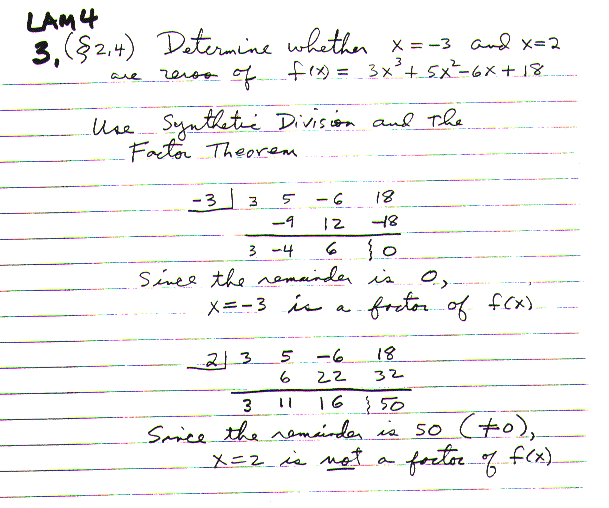 LAM 4
3. (§2.4) Determine whether x = -3 and x=2
are zeros of f(x) = 3x³ + 5x² - 6x + 18
Use Synthetic Division and the
Factor Theorem
-3 | 3 5 -6 18
-9 12 -18
3 -4 6 } 0
Since the remainder is 0,
x = -3 is a factor of f(x)
2 | 3 5 -6 18
6 22 32
3 11 16 } 50
Since the remainder is 50 (≠0),
x=2 is not a factor of f(x)